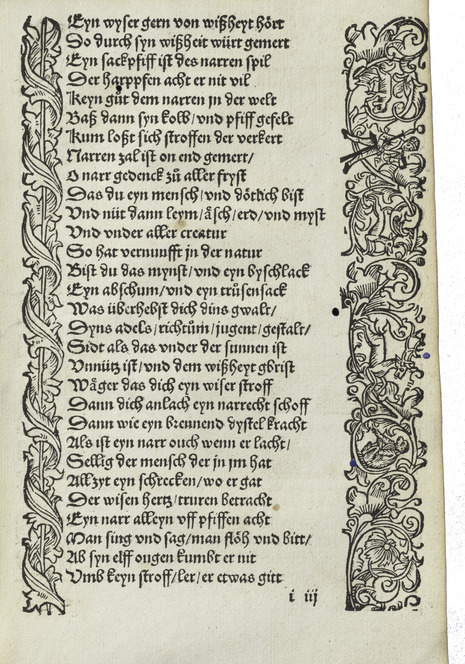 Eyn wyser gern von wißheyt hört
Do durch syn wißheit würt gemert
Eyn sackpfiff ist des narren spil
Der harppfen acht er nit vil
Keyn gůt dem narren jn der welt
Baß dann syn kolb/vnd pfiff gefelt
Kum loßt sich stroffen der verkert
Narren zal ist on end gemert/
O narr gedenck zů aller fryst
Das du eyn mensch/vnd dötlich bist
Vnd nüt dann leym/äsch/erd/vnd myst
Vnd vnder aller creatur
So hat vernuufft jn der natur
Bist du das mynst/vnd eyn byschlack
Eyn abschum/vnd eyn trůsensack
Was überhebst dich dins gwalt/
Dyns adels/richtům/jugent/gestalt/
Sidt als das vnder der sunnen ist
Vnnütz ist/vnd dem wißheyt gbrist
Wäger das dich eyn wiser stroff
Dann dich anlach eyn narrecht schoff
Dann wie eyn brennend dystel kracht
Als ist eyn narr ouch wenn er lacht/
Sellig der mensch der jn jm hat
All zyt eyn schrecken/wo er gat
Der wisen hertz/truren betracht
Eyn narr alleyn vff pfiffen acht
Man sing vnd sag/man flöh vnd bitt/
Ab syn elff ougen kumbt er nit
Vmb keyn stroff/ler/er etwas gitt
i iij